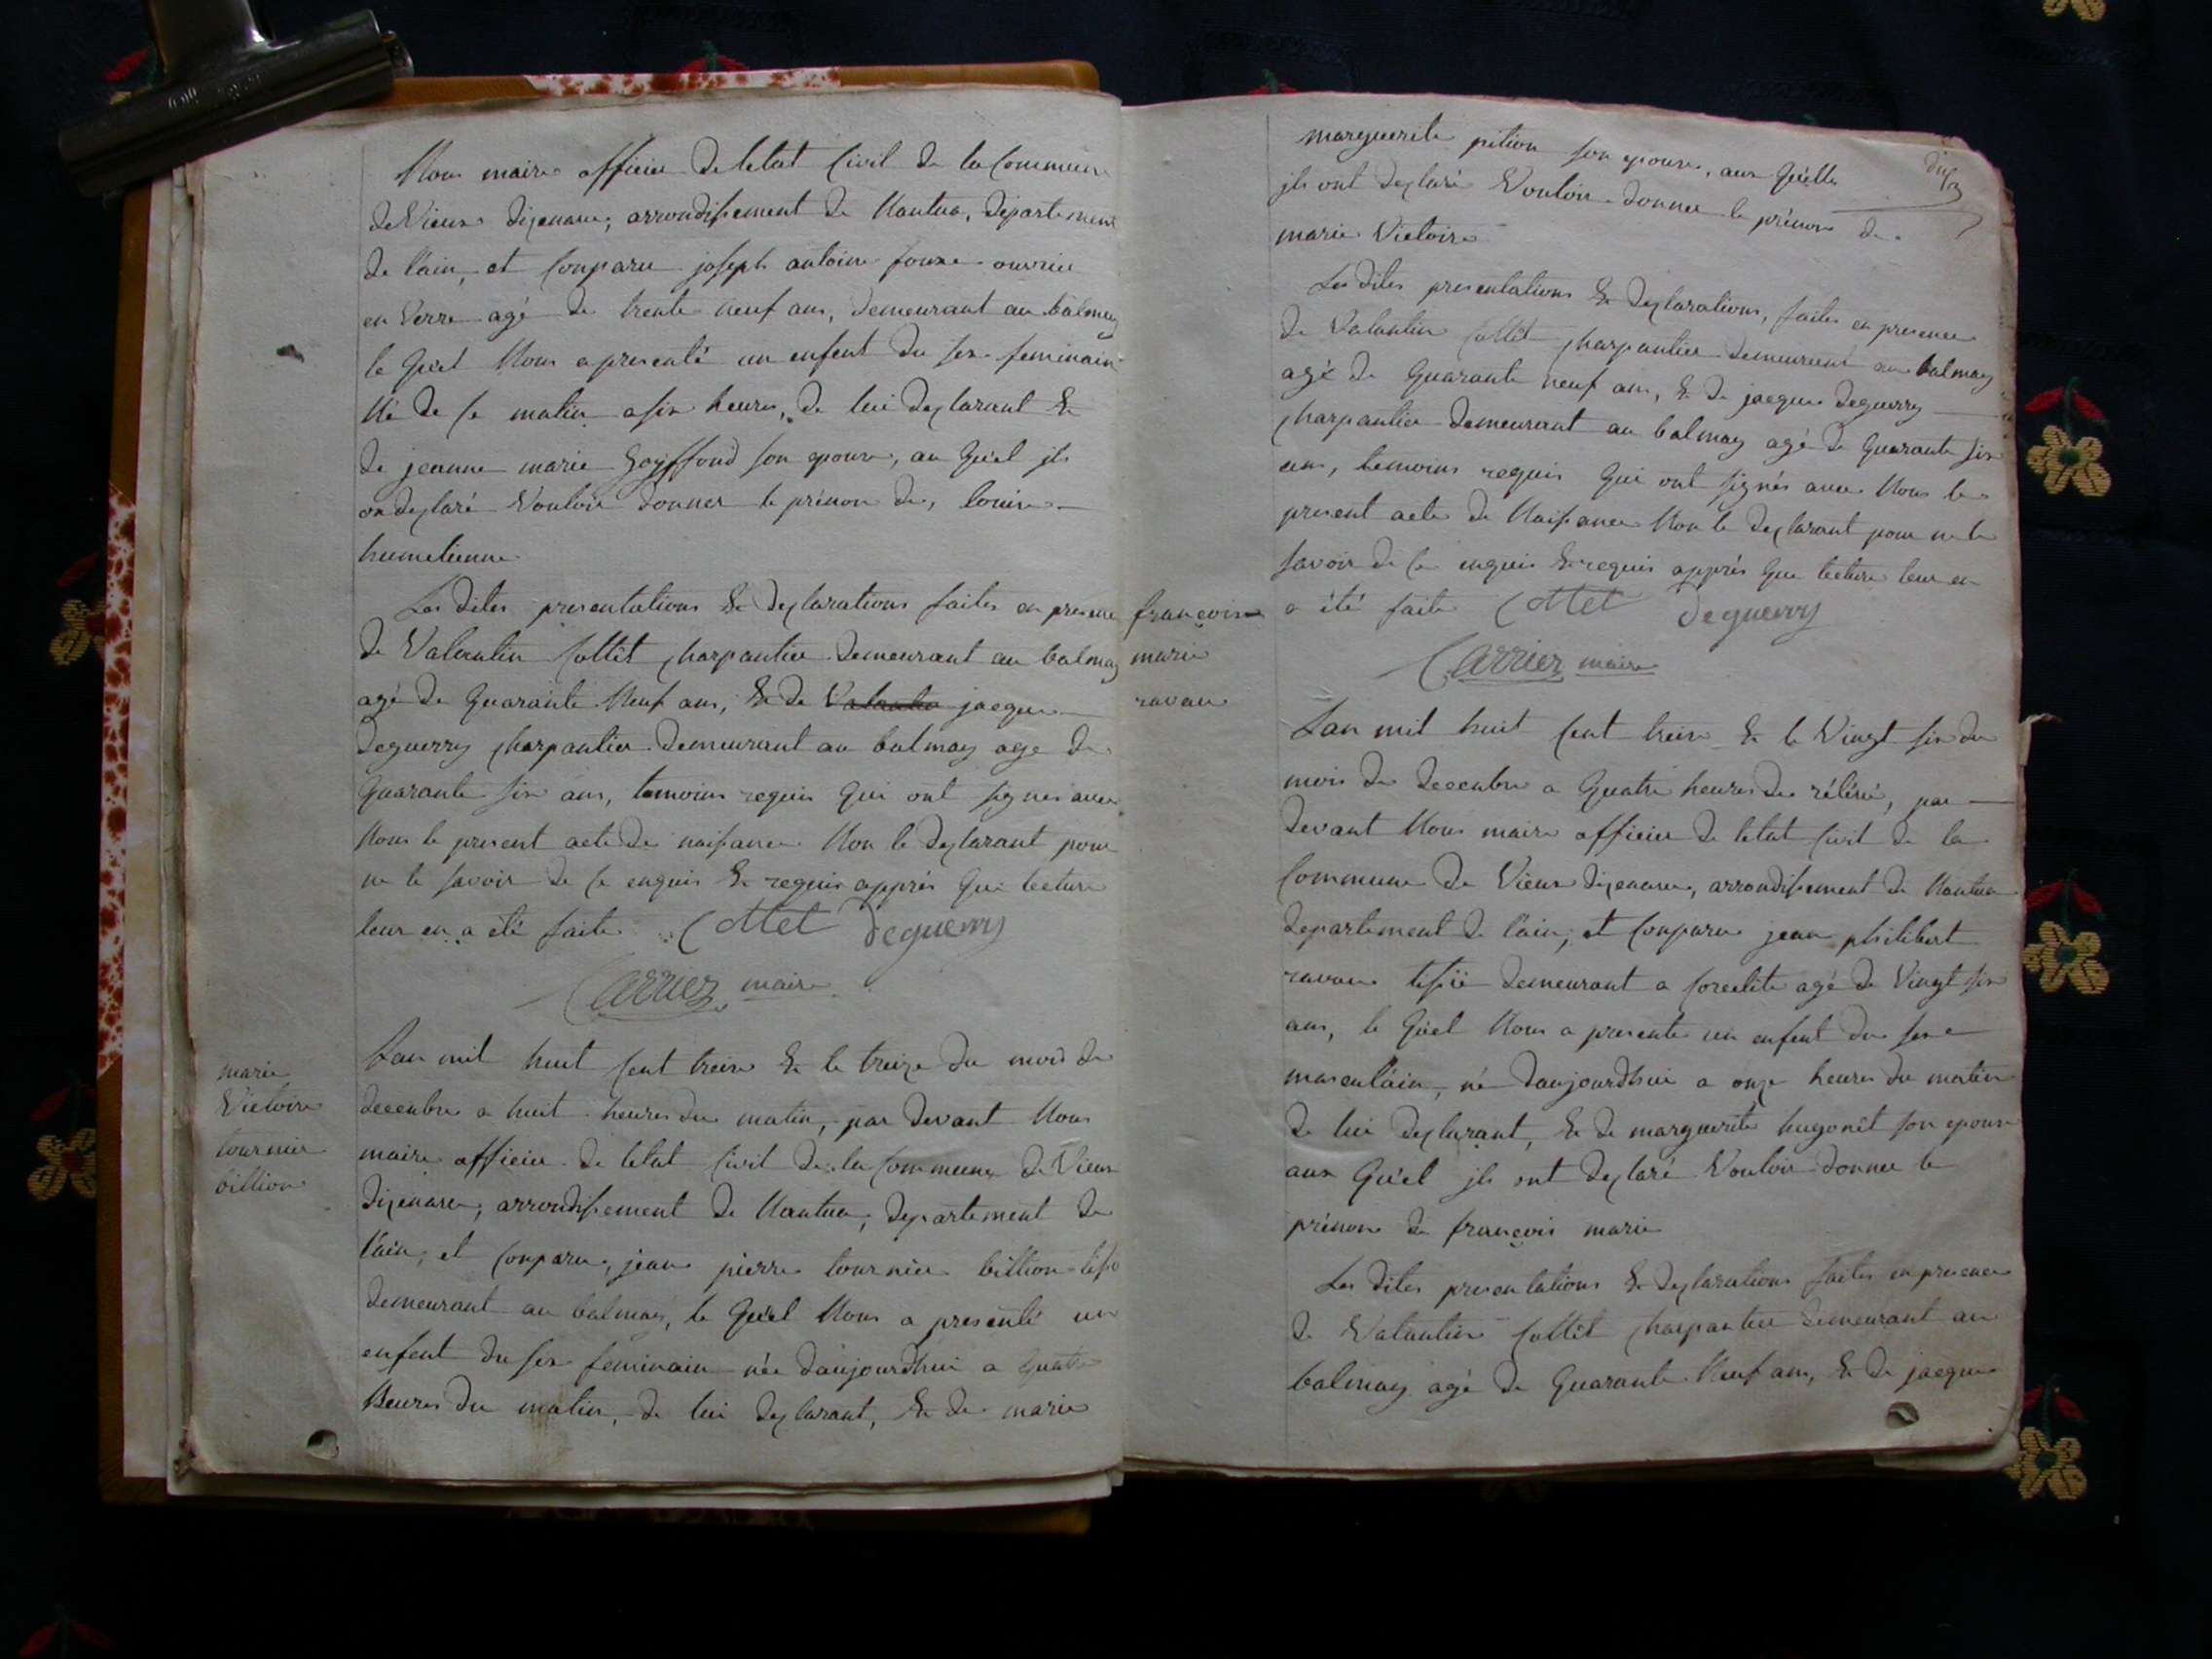 Nous maire officier de letat Civil de la Commune
de Vieux dizenave, arrondissement de Nantua, département
de l'ain, et Comparu joseph antoine fouze ouvrier
en Verre agé de trente neuf ans, demeurant au balmay
le Quel Nous a presenté un enfent du sex feminain
Né de se matin a six heures, de lui deζlarant &
de jeanne marie son epouse, au Quel jls
on deζlaré Vouloir donner le prénon de, louise
humelienne
Les dites presentations & deζlarations faites en presence
de Valantin Collet charpantier demeurant au balmay
agé de Quarante Neuf ans, & de Valantin jacque
deguerry charpantier demeurant au balmay age de
Quarante six ans, temoins requis Qui ont signés avec
Nous le present acte de naissance Non le deζlarant pour
ne le savoir de se enquis & requis apprés Que lecture
leur en a été faite Collet deguerry
Carrier maire
marie
Victoire
tournier
billion
Lan mil huit Cent treize & le treize du mois de
decembre a huit heures du matin, par devant Nous
maire officier de letat Civil de la Commune de Vieux
dizenave, arrondissement de Nantua, departement de
l'ain, et Comparu, jean pierre tournier billion
demeurant au balmay, le Quel Nous a presenté un
enfent du sex feminain née daujourdhui a Quatre
heures du matin, de lui deζlarant, & de marie
dix
marguerite pition son epouse, aux Quelle
jls ont deζlaré Vouloir donner le prénon de
marie Victoire
Les dites presentations & deζlarations, faites en presence
de Valantin Collet charpantier demeurant au balmay
agé de Quarante neuf ans, & de jacque deguerry
charpantier demeurant au balmay agé de Quarante six
ans, temoins requis Qui ont signés avec Nous le
present acte de Naissance Non le deζlarant pour ne le
savoir de se enquis & requis apprés Que lecture leur en
a été faite Collet deguerry
Carrier maire
françois
marie
ravau
Lan mil huit Cent treize & le Vingt six du
mois de decembre a Quatre heures de rélévé, par
devant Nous maire officier de letat Civil de la
Commune de Vieux dizenave, arrondissement de Nantua
departement de l'ain, et Comparu jean philibert
ravau demeurant a agé de Vingt six
ans, le Quel Nous a presente un enfent du sexe
masculain, né daujourdhui a onze heures du matin
de lui deζlarant, & de marguerite hugonêt son epouse
aux Quel jls ont deζlaré Vouloir donner le
prénon de françois marie
Les dites presentations & deζlarations faites en presence
de Valantin Collet charpantier demeurant au
balmay agé de Quarante Neuf ans, & de jacque